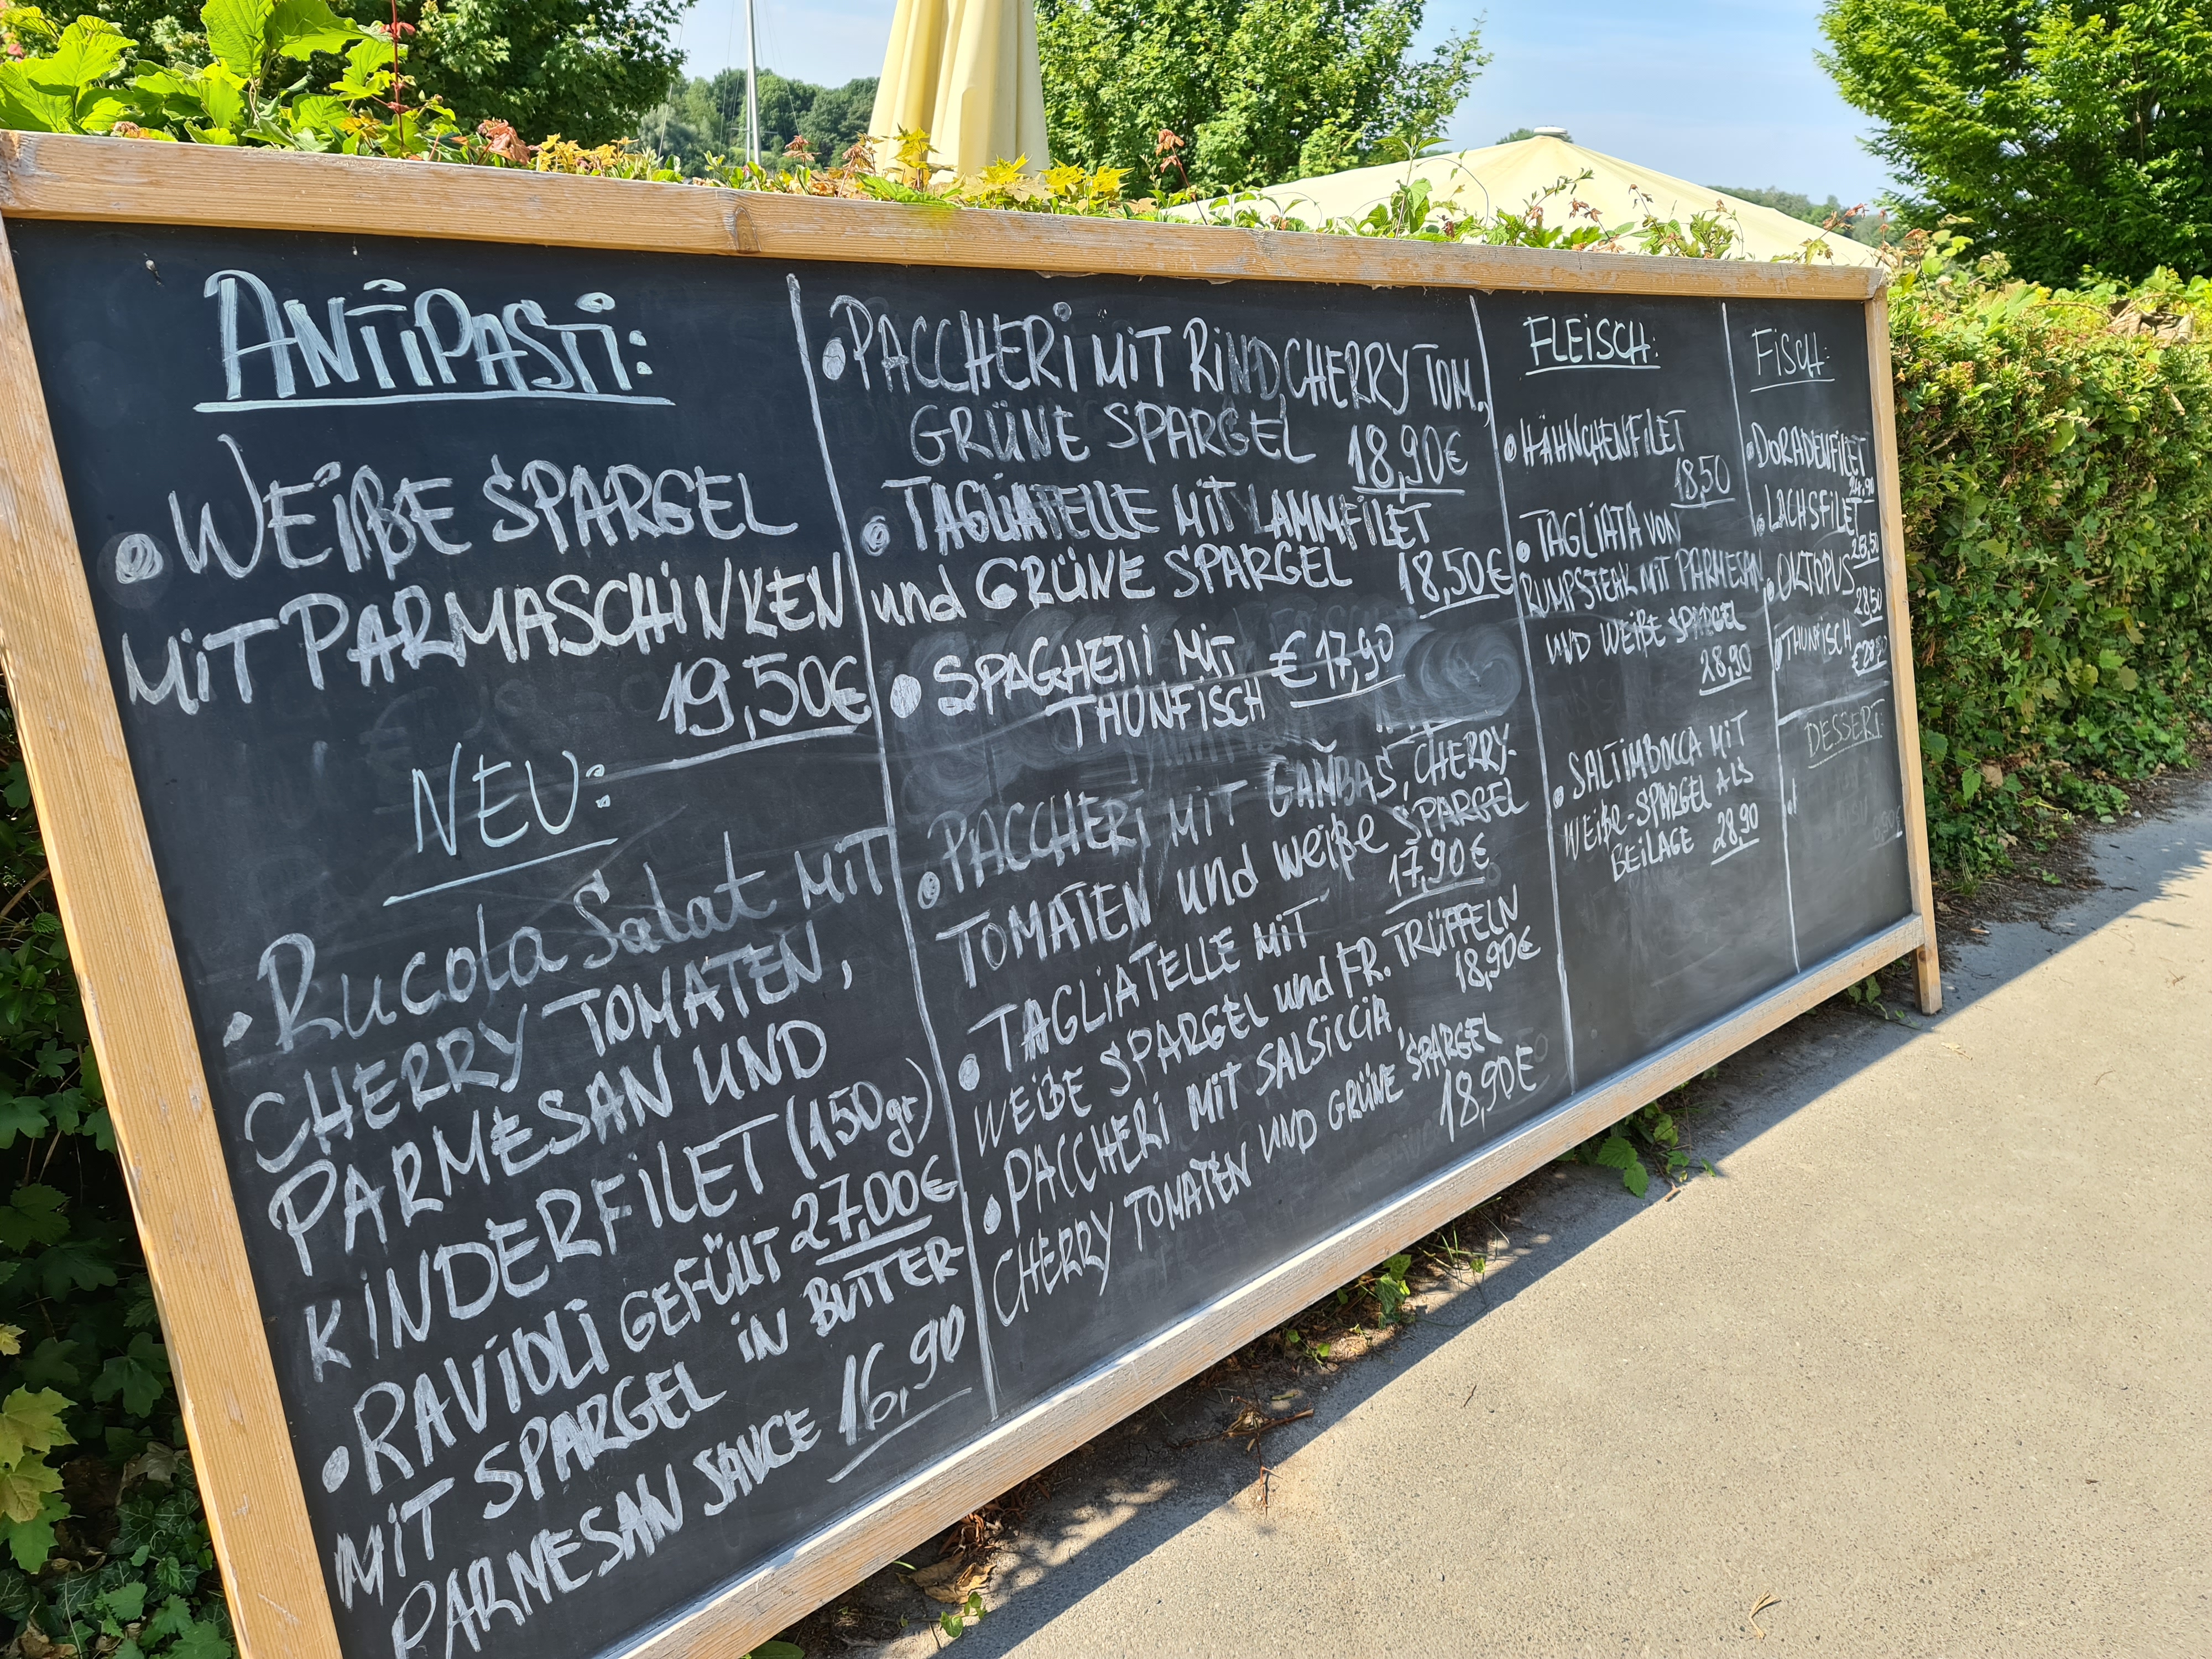 ANTIPASTI:
• WEIßE SPARGEL
MIT PARMASCHINKEN
19,50€
NEU:
• Rucola Salat MIT
CHERRY TOMATEN,
PARMESAN UND
KINDERFILET (150gr)
27,00€
• RAVIOLI GEFÜLLT
MIT SPARGEL IN BUTTER-
PARMESAN SAUCE 16,90
• PACCHERI MIT RIND, CHERRY TOM.,
GRÜNE SPARGEL 18,90€
• TAGLIATELLE MIT LAMMFILET
und GRÜNE SPARGEL 18,50€
• SPAGHETTI MIT € 17,90
THUNFISCH
• PACCHERI MIT GAMBAS, CHERRY-
TOMATEN und weiße SPARGEL
17,90€
• TAGLIATELLE MIT
WEIßE SPARGEL und FR. TRÜFFELN
18,90€
• PACCHERI MIT SALSICCIA
CHERRY TOMATEN UND GRÜNE SPARGEL
18,90€
FLEISCH:
• HÄHNCHENFILET
18,50
• TAGLIATA VON
RUMPSTEAK MIT PARMESAN
UND WEIßE SPARGEL
28,90
• SALTIMBOCCA MIT
WEIße-SPARGEL ALS
BEILAGE 28,90
FISCH:
• DORADENFILET
24,90
• LACHSFILET
• OKTOPUS
28,50
• THUNFISCH
DESSERT: